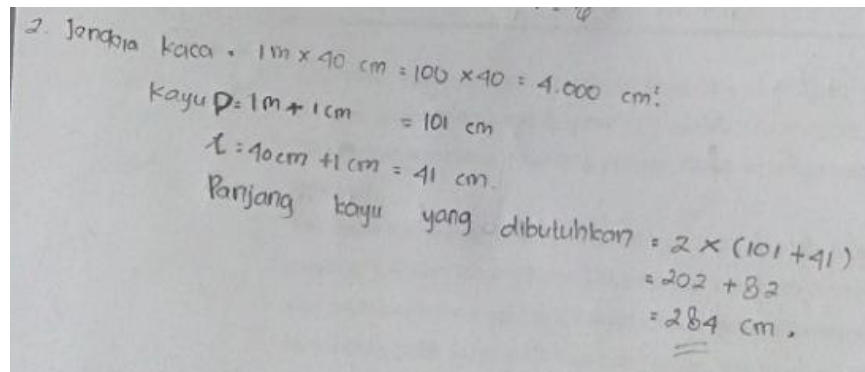 2. Jendela kaca . 1m x 40 cm = 100 x 40 = 4.000 cm²
Kayu P = 1m + 1 cm = 101 cm
l = 40cm + 1 cm = 41 cm.
Panjang kayu yang dibutuhkan = 2 x (101 + 41)
= 202 + 82
= 284 cm.